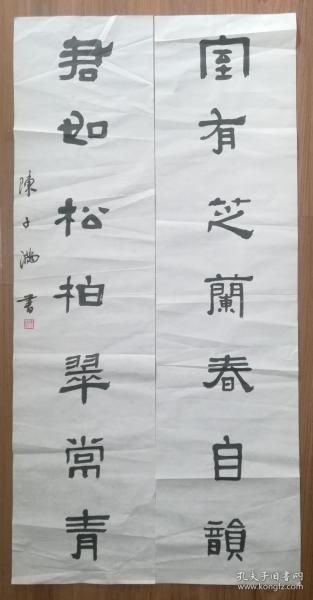 室有芝蘭春自韻
君如松柏翠常青
陳子鴻書
孔夫子旧书网
www.kongfz.com